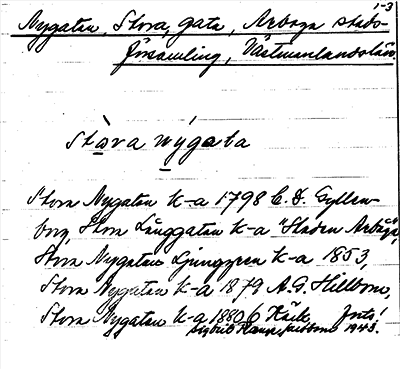 1-3
Nygatan, Stora, gata, Arboga stads-
församling, Västmanlandslän.
Stòra nýgata
Stora Nygatan k-a 1798 C. D. Gyllen-
borg, Stora Långgatan k-a "Staden Arboga",
Stora Nygatan Ljunggren k-a 1853,
Stora Nygatan k-a 1879 A. G. Hillbom,
Stora Nygatan k-a 1880 G Käck, Ints!
1943.